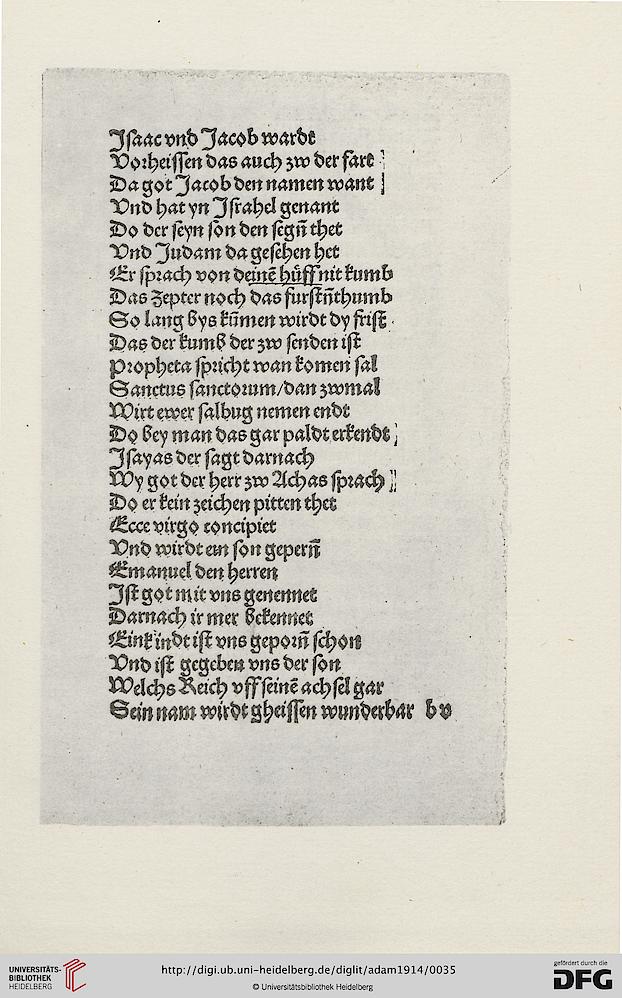 Jſaac vnd Jacob wardt
Vorheiſſen das auch zw der fart
Da got Jacob den namen want
Vnd hat yn Jſrahel genant
Do der ſeyn ſon den ſegn̄ thet
Vnd Judam da geſehen het
Er ſprach von deinē hüff nit kumb
Das Zepter noch das furſtn̄thumb
So lang bys kūmen wirdt dy friſt
Das der kumb der zw ſenden iſt
Propheta ſpricht wan komen ſal
Sanctus ſanctorum/dan zwmal
Wirt ewer ſalbug nemen endt
Do bey man das gar paldt erkendt
Jſayas der ſagt darnach
Wy got der herr zw Achas ſprach
Do er kein zeichen pitten thet
Ecce virgo concipiet
Vnd wirdt ein ſon gepern̄
Emanuel den herren
Jſt got mit vns genennet
Darnach ir mer bekennet
Eink indt iſt vns geporn̄ ſchon
Vnd iſt gegeben vns der ſon
Welchs Reich vff ſeinē achſel gar
Sein nam wirdt gheiſſen wunderbar b v
UNIVERSITÄTS-
BIBLIOTHEK
HEIDELBERG
http://digi.ub.uni-heidelberg.de/diglit/adam1914/0035
© Universitätsbibliothek Heidelberg
gefördert durch die
DFG